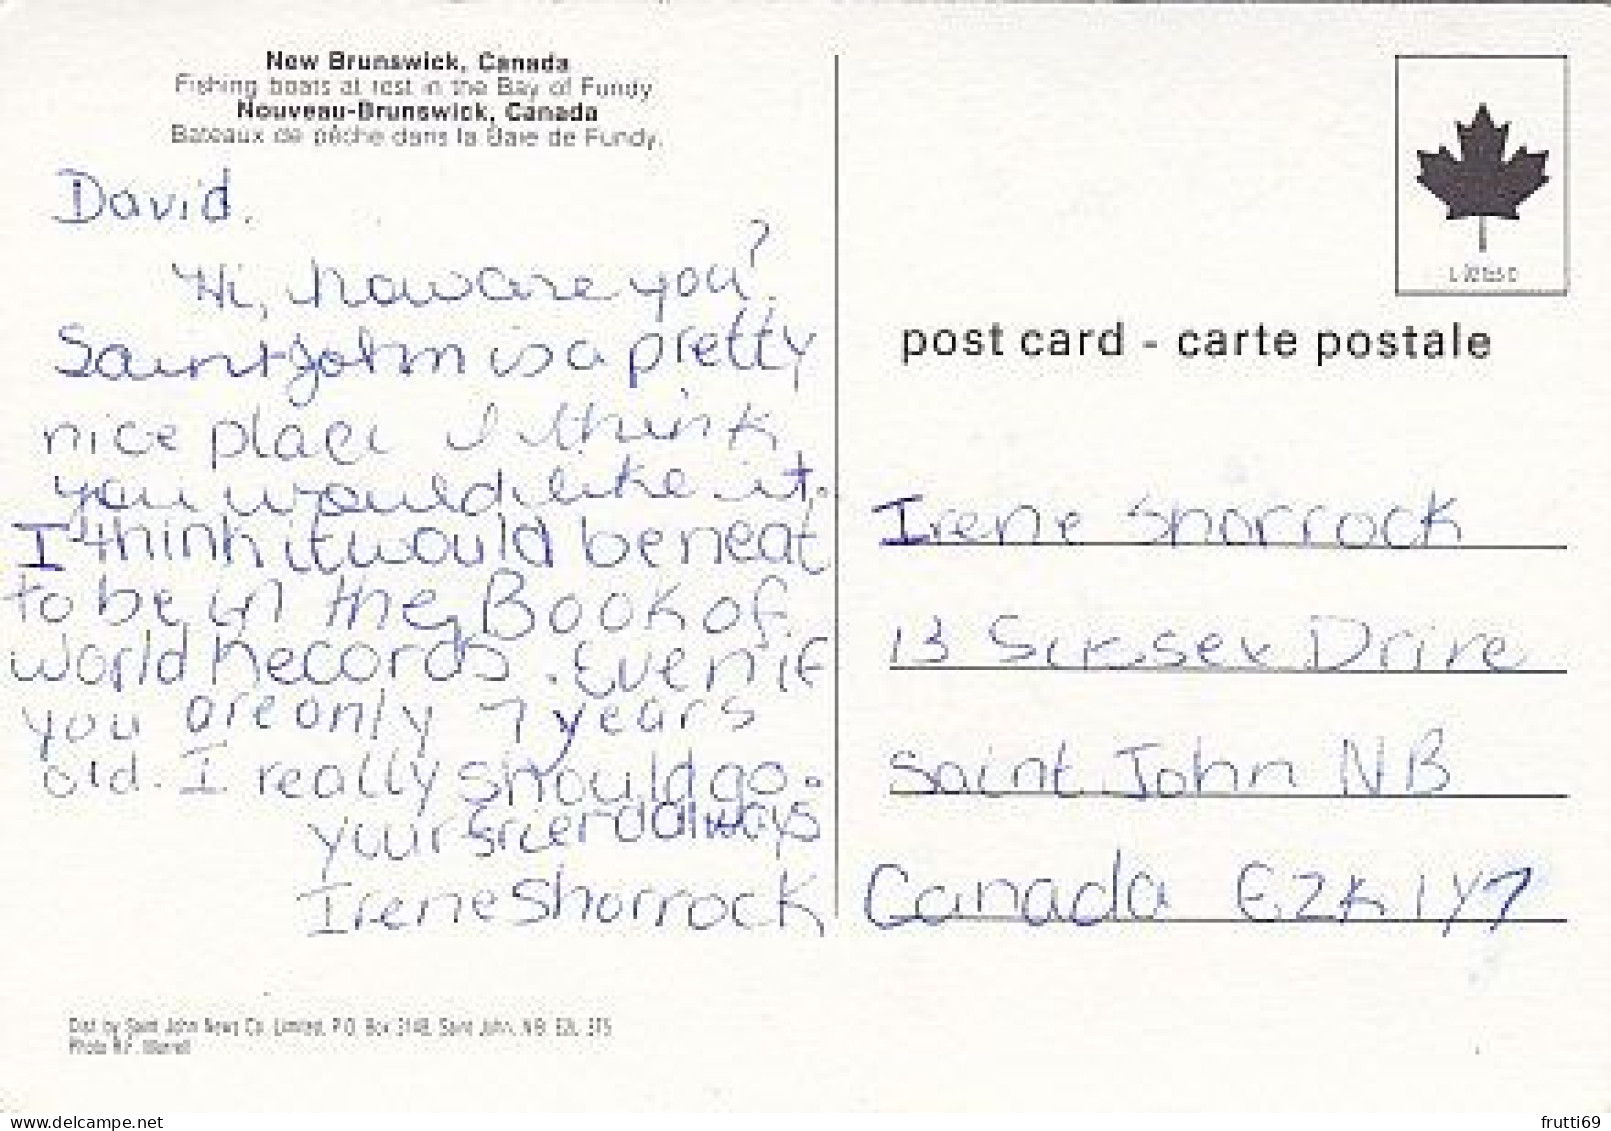 New Brunswick, Canada
Fishing boats at rest in the Bay of Fundy
Nouveau-Brunswick, Canada
Bateaux de pêche dans la Baie de Fundy.
David.
Hi, how are you?
Saint John is a pretty
nice place I think
you would like it.
I think it would be neat
to be in the Book of
World Records. Even if
you are only 7 years
old. I really should go.
your friend always
Irene Shorrock
post card - carte postale
Irene Shorrock
13 Sussex Drive
Saint John NB
Canada E2K 1Y7
Dist. by Saint John News Co. Limited, P.O. Box 3148, Saint John, NB E2L
Photo
frutti69